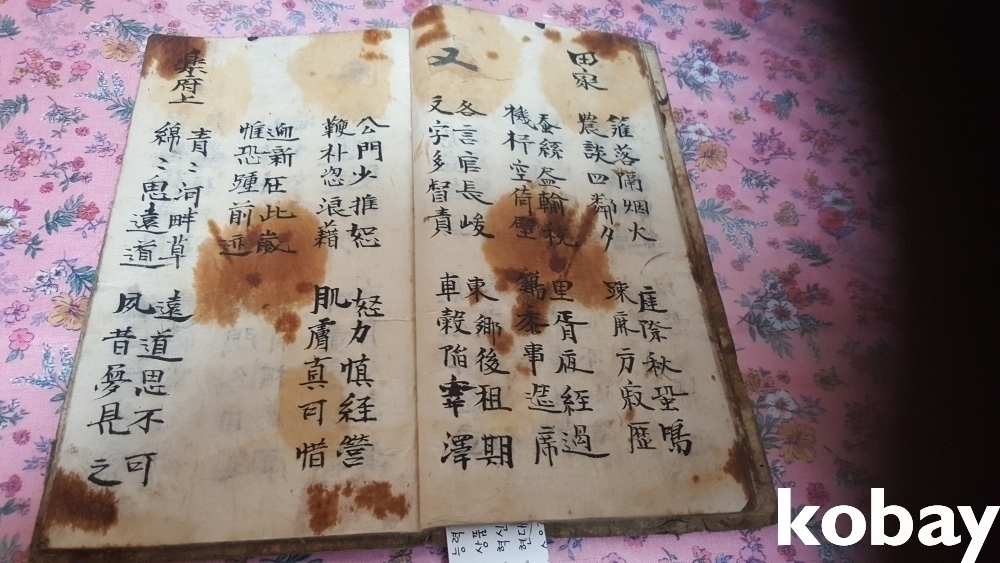 田家
籬落隔烟火
農談四鄰夕
庭際秋蛩鳴
疎麻方寂歷
蚕絲盡輸稅
機杼空倚壁
里胥夜經過
鷄黍事筵席
又
各言官長峻
文字多督責
東鄉後租期
車轂陷澤
公門少推恕
鞭朴恣浪藉
怒力慎經營
肌膚真可惜
迎新在此歲
惟恐踵前迹
樂府上
青〻河畔草
綿〻思遠道
遠道思不可
夙昔夢見之
kobay